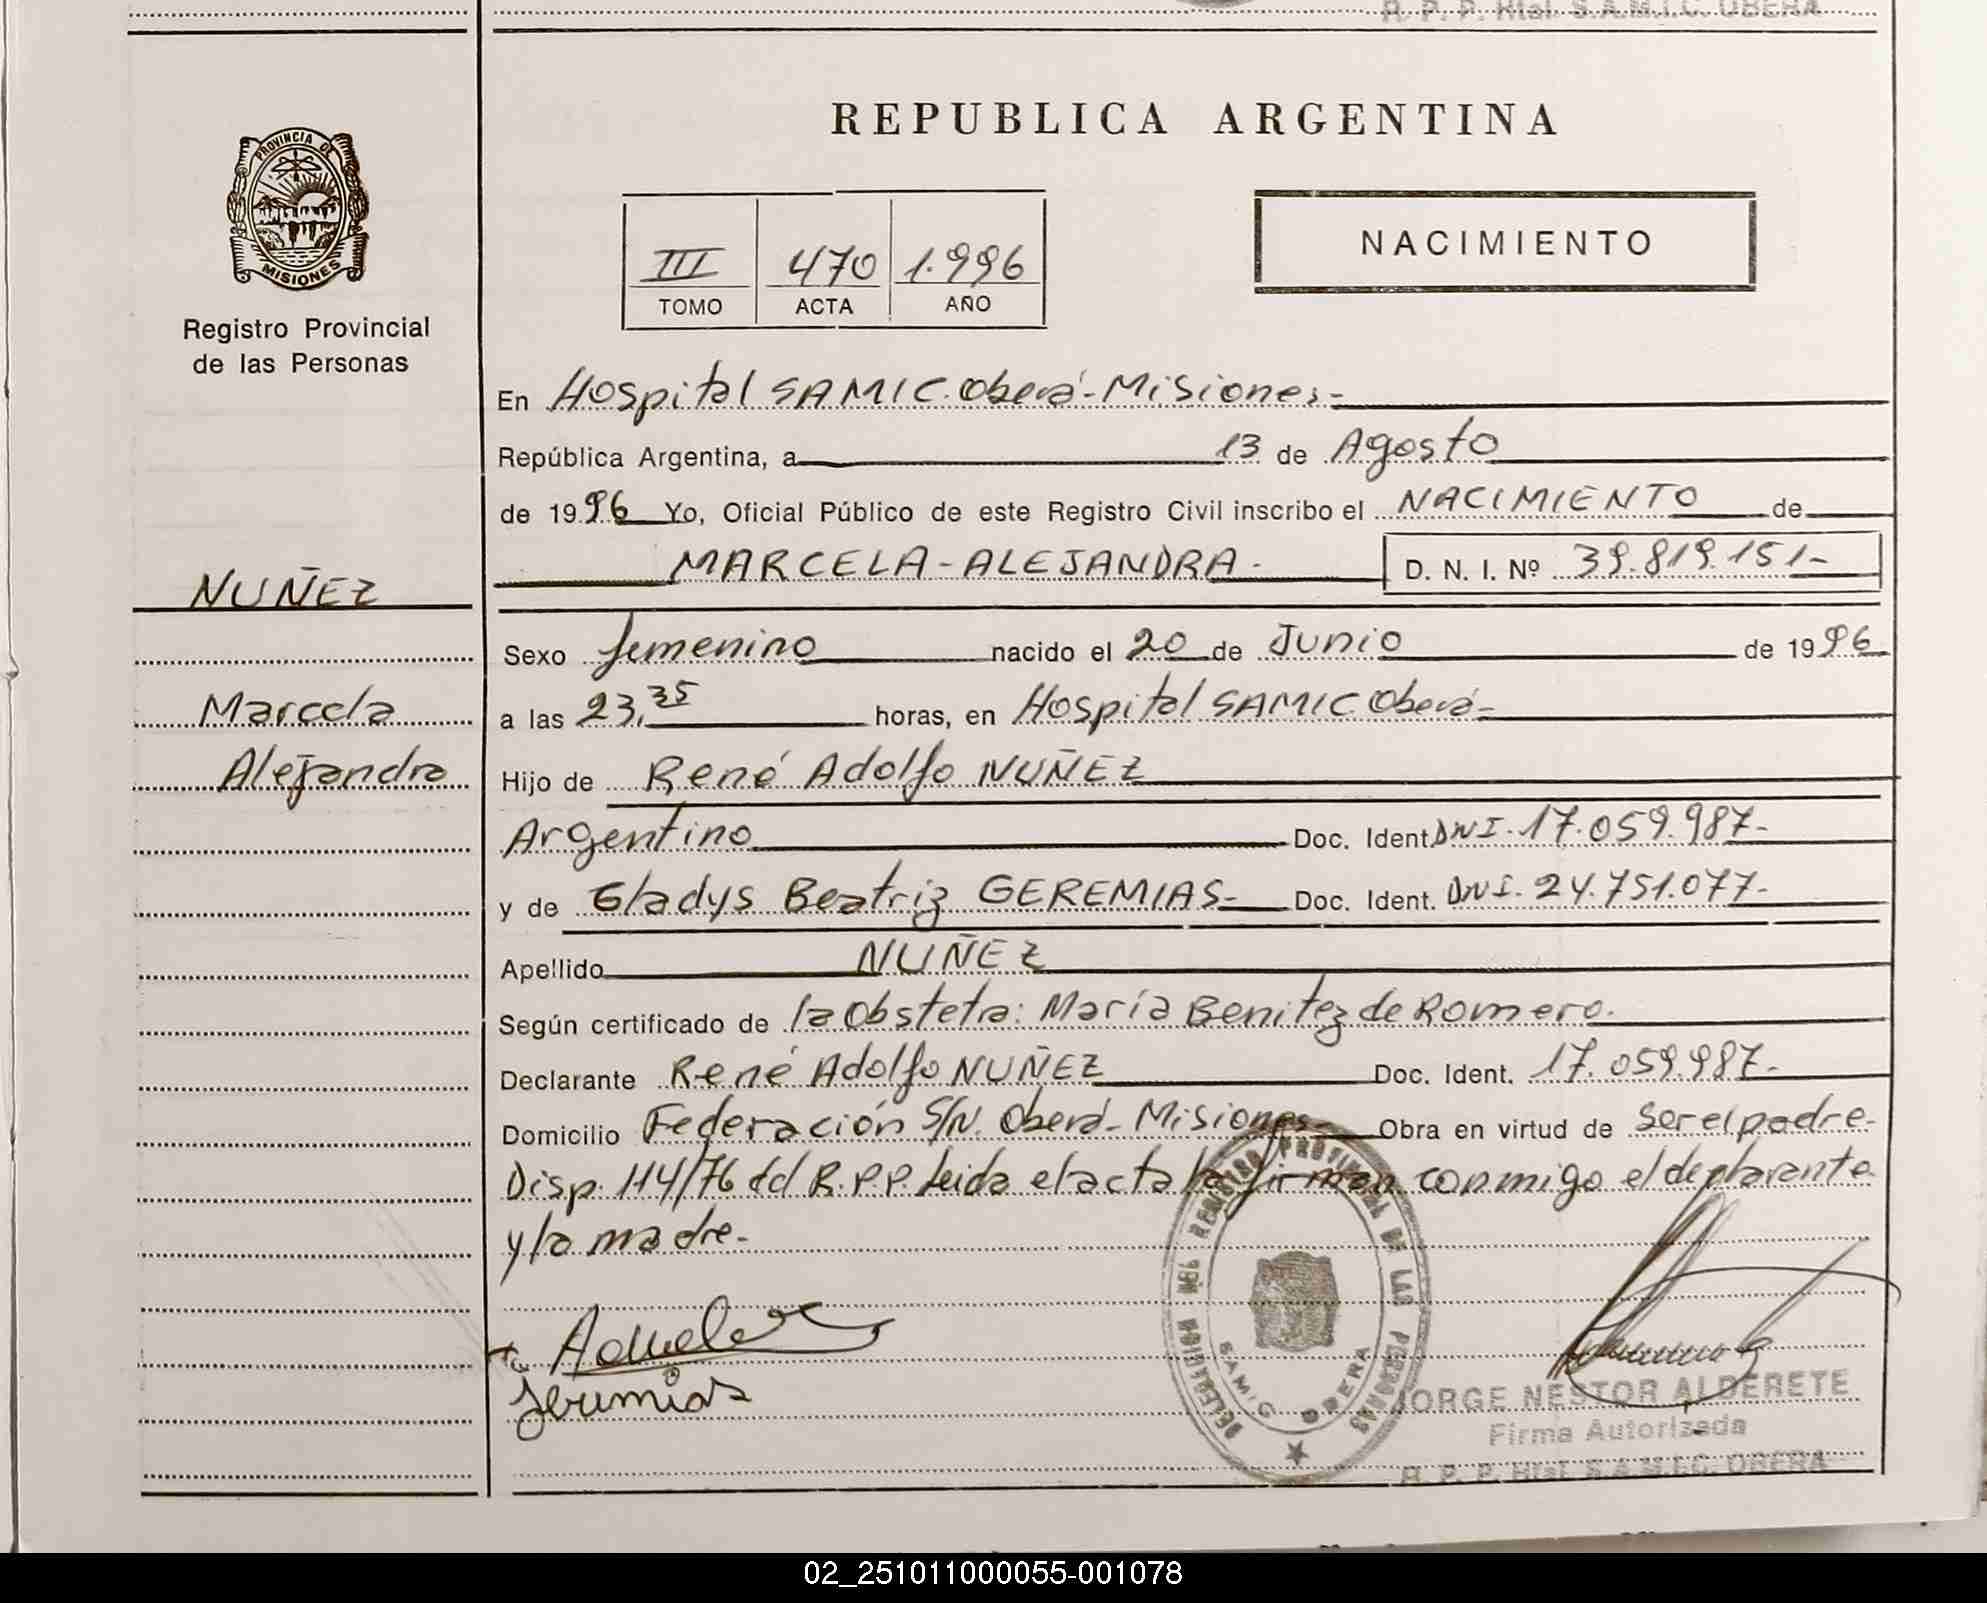 R. P. P. Htal. S.A.M.I.C. OBERA
PROVINCIA DE
MISIONES
Registro Provincial
de las Personas
NUÑEZ
Marcela
Alejandra
REPUBLICA ARGENTINA
III 470 1.996
TOMO ACTA AÑO
NACIMIENTO
En Hospital SAMIC. Oberá-Misiones-
República Argentina, a 13 de Agosto
de 1996 Yo, Oficial Público de este Registro Civil inscribo el NACIMIENTO de
MARCELA-ALEJANDRA- D. N. I. Nº 39.819.151-
Sexo femenino nacido el 20 de Junio de 1996
a las 23,35 horas, en Hospital SAMIC Oberá-
Hijo de René Adolfo NUÑEZ
Argentino Doc. Ident. DNI. 17.059.987-
y de Gladys Beatriz GEREMIAS- Doc. Ident. DNI. 24.751.077-
Apellido NUÑEZ
Según certificado de la Obsteta: María Benitez de Romero.
Declarante René Adolfo NUÑEZ Doc. Ident. 17.059.987-
Domicilio Federación S/N. Oberá- Misiones- Obra en virtud de ser el padre-
Disp. 114/76 del R.P.P. Leida el acta la firman conmigo el declarante
y la madre.-
DELEGACION DEL REGISTRO PROVINCIAL DE LAS PERSONAS
SAMIC OBERA
JORGE NESTOR ALDERETE
Firma Autorizada
R. P. P. Htal. S.A.M.I.C. OBERA
02_251011000055-001078